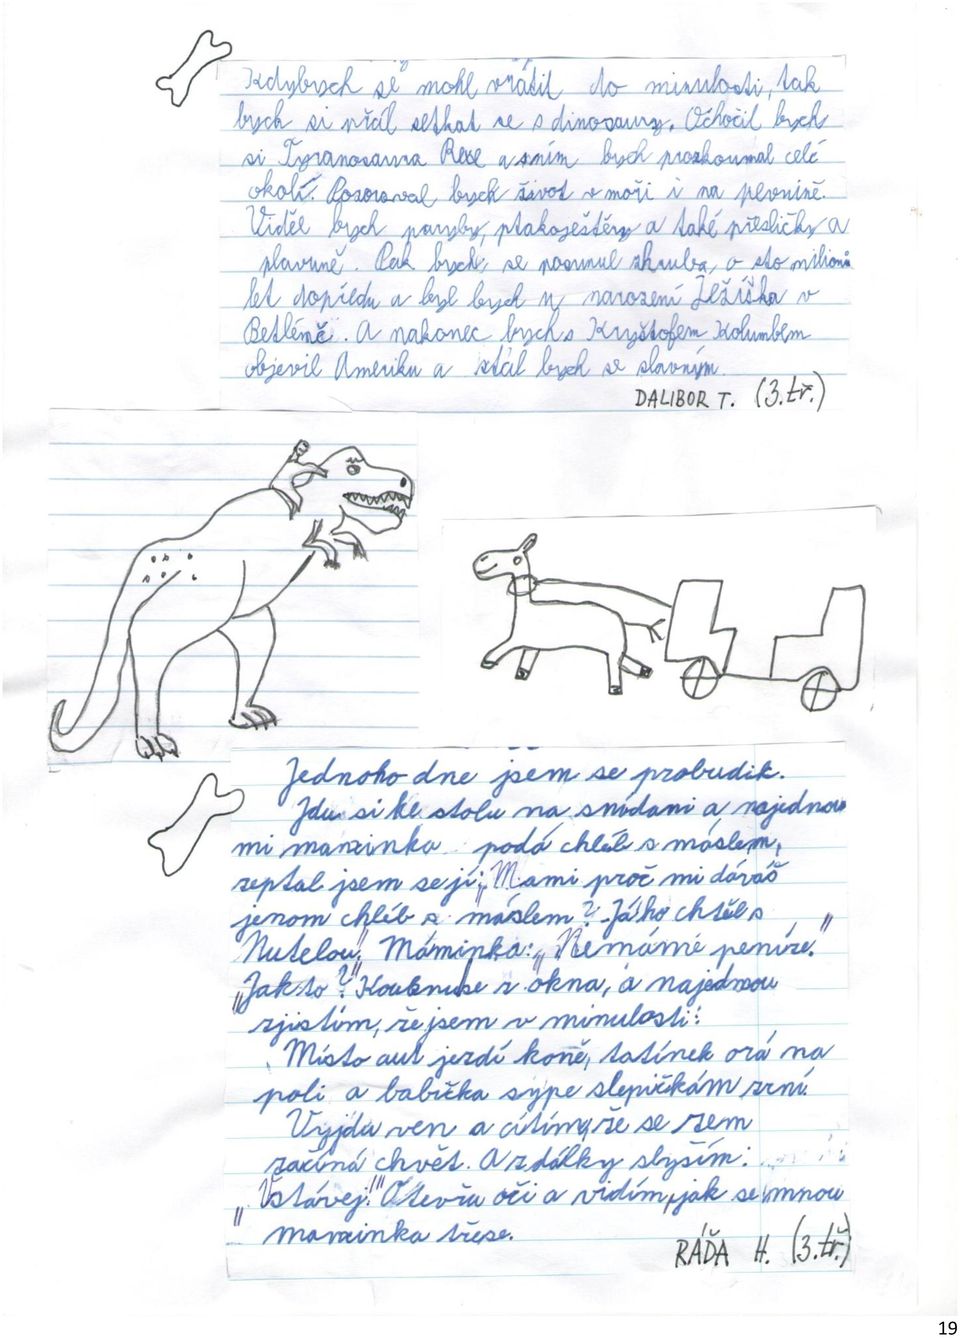 Kdybych se mohl vrátit do minulosti, tak
bych si přál setkat se s dinosaury. Ochočil bych
si Tyranosaura Rexe a s ním bych prozkoumal celé
okolí. Pozoroval bych život v moři i na pevnině.
Viděl bych paryby, ptakoještěry a také přesličky a
plavuně. Pak bych se posunul zhruba o sto milionů
let dopředu a byl bych u narození Ježíška v
Betlémě. A nakonec bych s Kryštofem Kolumbem
objevil Ameriku a stal bych se slavným
DALIBOR T. (3.tř.)
Jednoho dne jsem se probudil.
Jdu si ke stolu na snídani a najednou
mi maminka podá chléb s máslem,
zeptal jsem se jí: „Mami proč mi dáváš
jenom chléb s máslem? Já ho chtěl s
Nutelou." Maminka: „Nemáme peníze."
„Jak to?" Kouknu se z okna, a najednou
zjistím, že jsem v minulosti:
Místo aut jezdí koně, tatínek orá na
poli a babička sype slepičkám zrní.
Vyjdu ven a cítím, že se zem
začíná chvět. A z dálky slyším:
„Vstávej!" Otevřu oči a vidím, jak se mnou
maminka třese.
RÁĎA H. (3.tř.)
19